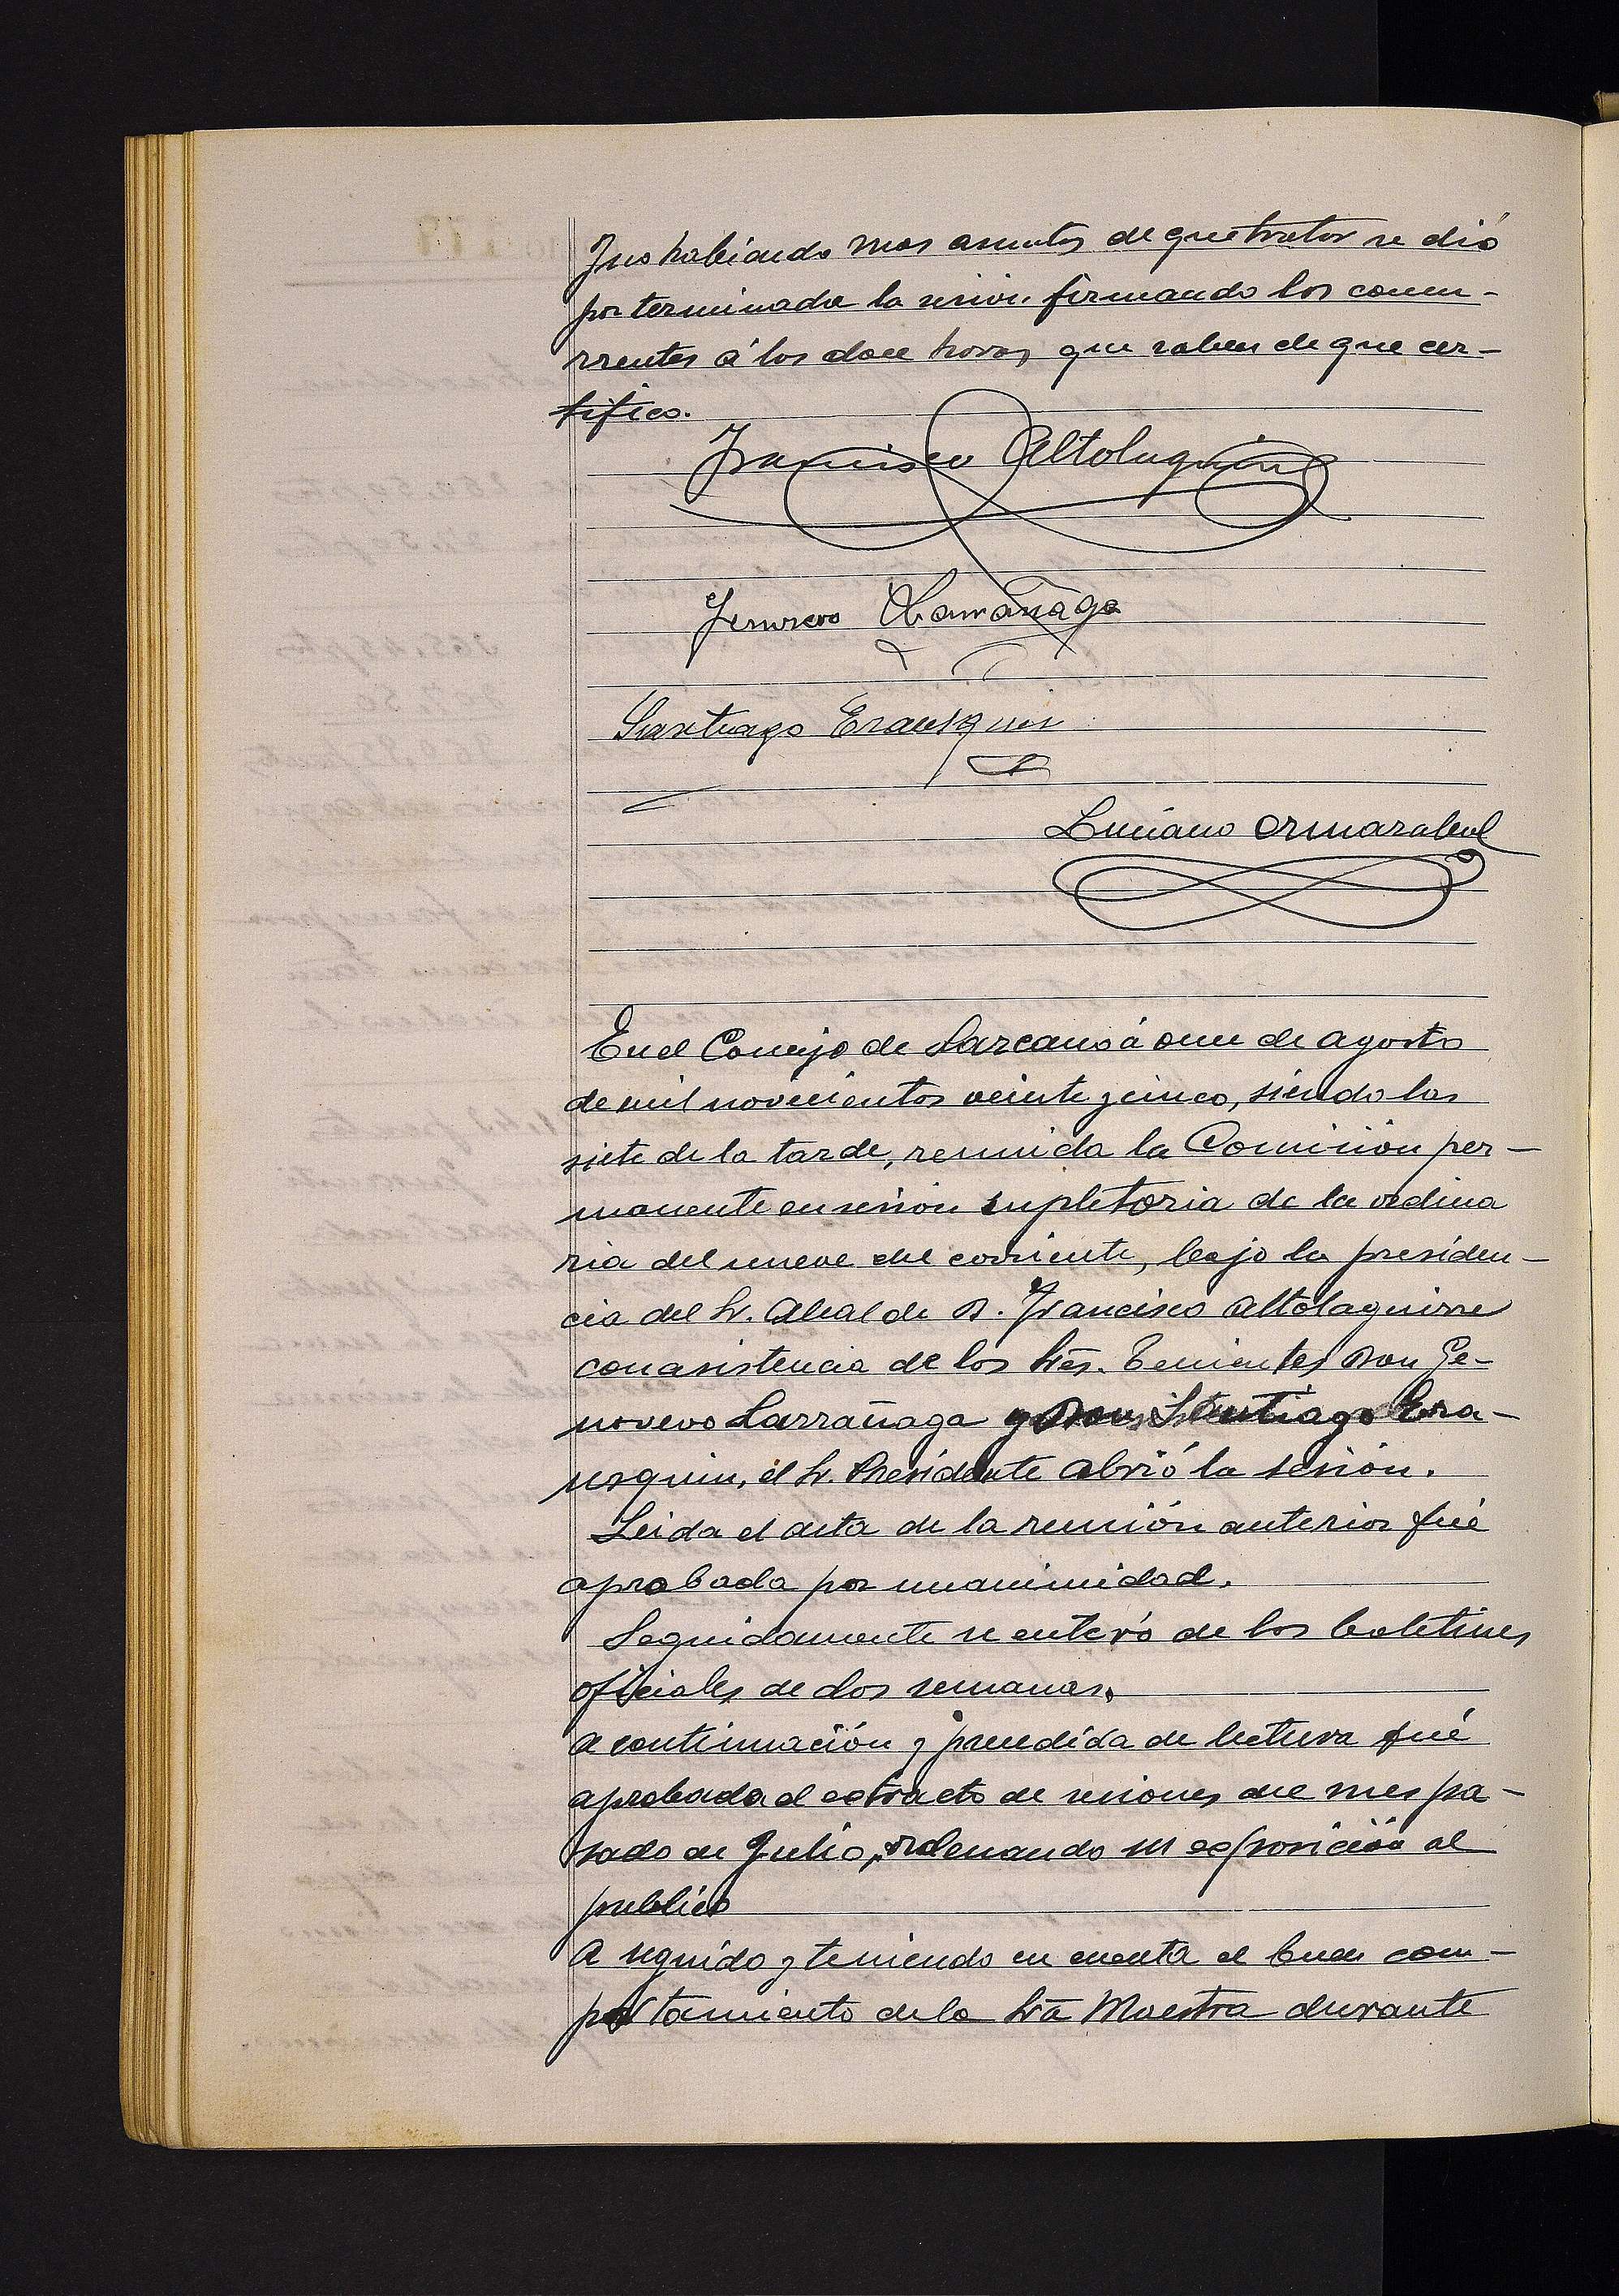 Y no habiendo mas asuntos de que tratar se dió
por terminada la sesion firmando los concu-
rrentes á las doce horas, que saben de que cer-
tifico.
Francisco Altolaguirre
Jenovevo Larrañaga
Santiago Erausquin
Luciano Ormazabal
En el Concejo de Lazcano á once de agosto
de mil novecientos veinte y cinco, siendo las
siete de la tarde, reunida la Comision per-
manente en sesión supletoria de la ordina
ria del nueve del corriente, bajo la presiden-
cia del Sr. Alcalde D. Francisco Altolaguirre
con asistencia de los Srēs. Tenientes Don Ge-
novevo Larrañaga y Don Santiago Era-
usquin, el Sr. Presidente abrió la sesión.
Leida el acta de la reunión anterior fué
aprobada por unanimidad.
Seguidamente se enteró de los boletines
oficiales de dos semanas.
A continuación y precedida de lectura fué
aprobada el estracto de sesiones del mes pa-
sado de Julio, ordenando su esposición al
publico
A seguido y teniendo en cuenta el buen com-
portamiento de la Srā Maestra durante